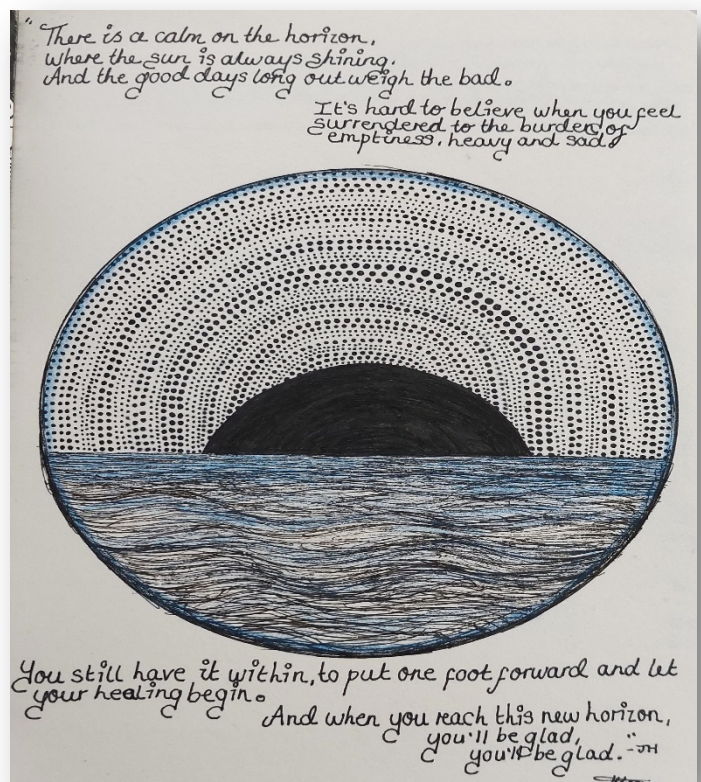 "There is a calm on the horizon,
where the sun is always shining.
And the good days long outweigh the bad.
It's hard to believe when you feel
surrendered to the burden of
emptiness, heavy and sad.
You still have it within, to put one foot forward and let
your healing begin.
And when you reach this new horizon,
you'll be glad,
you'll be glad." -JH